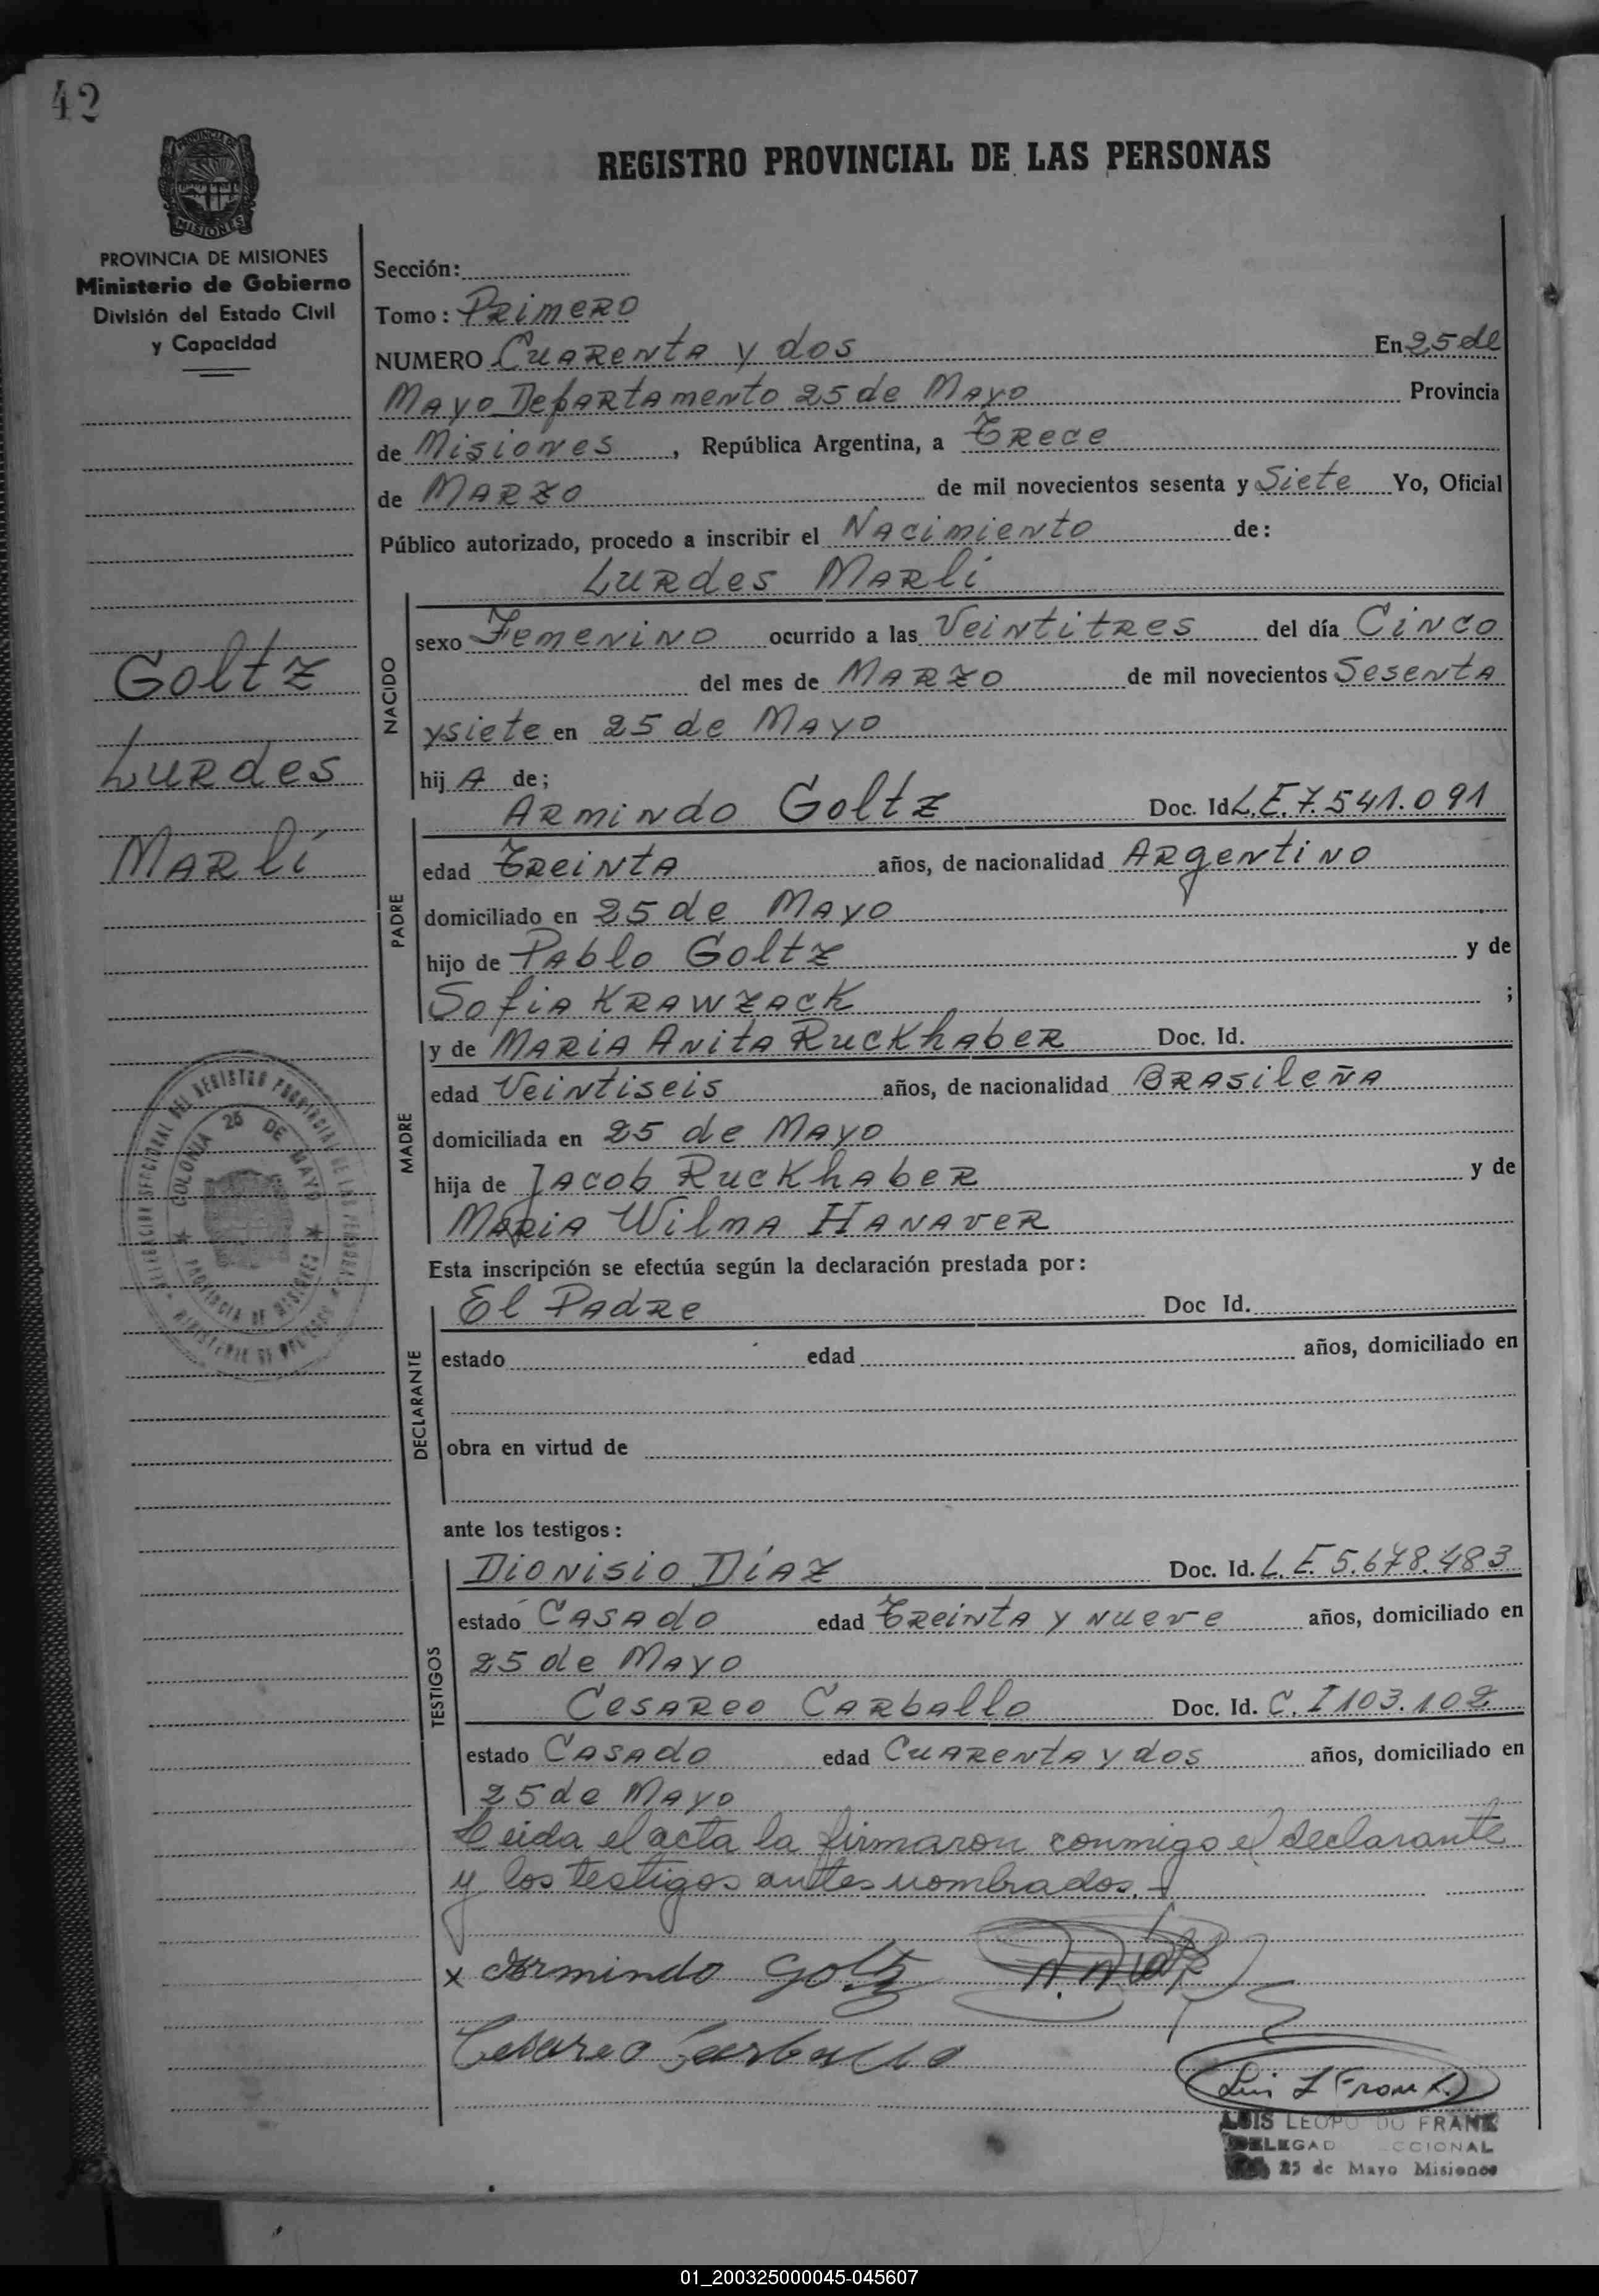 42
REGISTRO PROVINCIAL DE LAS PERSONAS
PROVINCIA DE MISIONES
Ministerio de Gobierno
División del Estado Civil
y Capacidad
Sección:
Tomo: Primero
NUMERO Cuarenta y dos En 25 de
Mayo Departamento 25 de Mayo Provincia
de Misiones, República Argentina, a Trece
de Marzo de mil novecientos sesenta y Siete Yo, Oficial
Público autorizado, procedo a inscribir el Nacimiento de:
Lurdes Marli
NACIDO
sexo Femenino ocurrido a las Veintitres del día Cinco
del mes de Marzo de mil novecientos Sesenta
y siete en 25 de Mayo
hij A de;
Goltz
Lurdes
Marlí
PADRE
Armindo Goltz Doc. Id L.E. 7.541.091
edad Treinta años, de nacionalidad Argentino
domiciliado en 25 de Mayo
hijo de Pablo Goltz y de
Sofia Krawzack ;
MADRE
y de Maria Anita Ruckhaber Doc. Id.
edad Veintiseis años, de nacionalidad Brasileña
domiciliada en 25 de Mayo
hija de Jacob Ruckhaber y de
Maria Wilma Hanaver
DELEGACION SECCIONAL DEL REGISTRO PROVINCIAL DE LAS PERSONAS
COLONIA 25 DE MAYO
PROVINCIA DE MISIONES
MINISTERIO DE
Esta inscripción se efectúa según la declaración prestada por:
DECLARANTE
El Padre Doc Id.
estado edad años, domiciliado en
obra en virtud de
ante los testigos:
TESTIGOS
Dionisio Díaz Doc. Id. L.E. 5.678.483
estado Casado edad Treinta y nueve años, domiciliado en
25 de Mayo
Cesareo Carballo Doc. Id. C.I 103.102
estado Casado edad Cuarenta y dos años, domiciliado en
25 de Mayo
Leida el acta la firmaron conmigo el declarante
y los testigos antes nombrados.-
x Armindo Goltz D. Diaz
Cesareo Carballo
Luis L Frank
LUIS LEOPO DO FRANK
DELEGAD CCIONAL
25 de Mayo Misiones
01_200325000045-045607